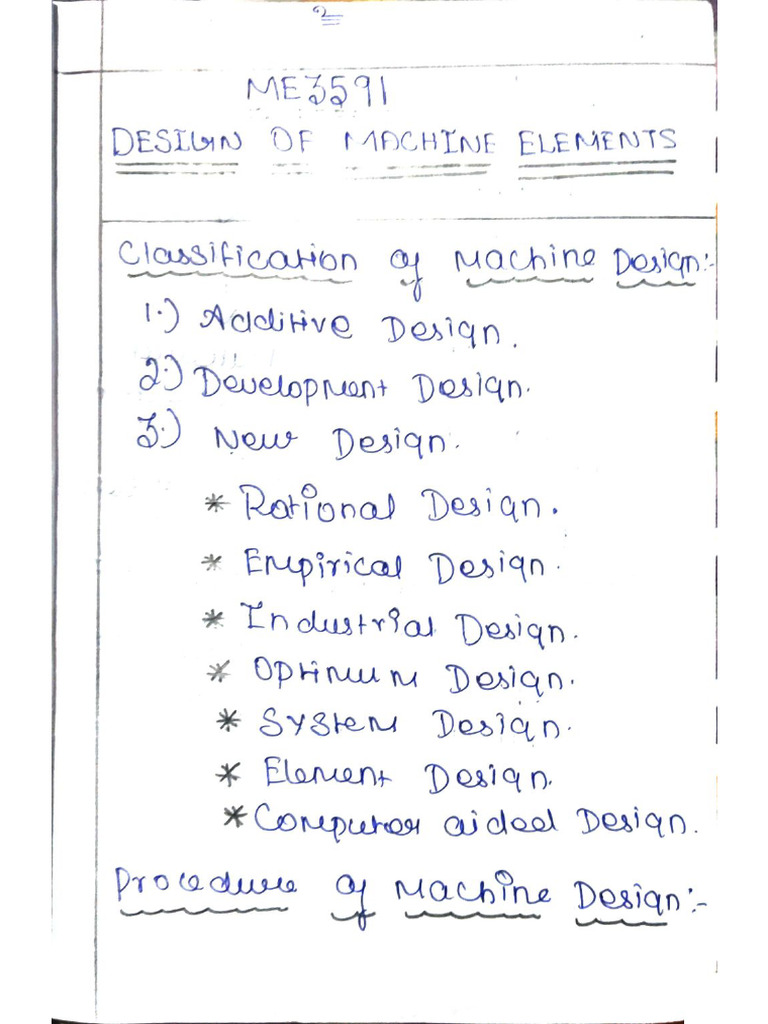 2
ME3591
DESIGN OF MACHINE ELEMENTS
Classification of Machine Design:-
1.) Additive Design.
2.) Development Design.
3.) New Design.
* Rational Design.
* Empirical Design.
* Industrial Design.
* Optimum Design.
* System Design.
* Element Design.
* Computer aided Design.
Procedure of Machine Design:-